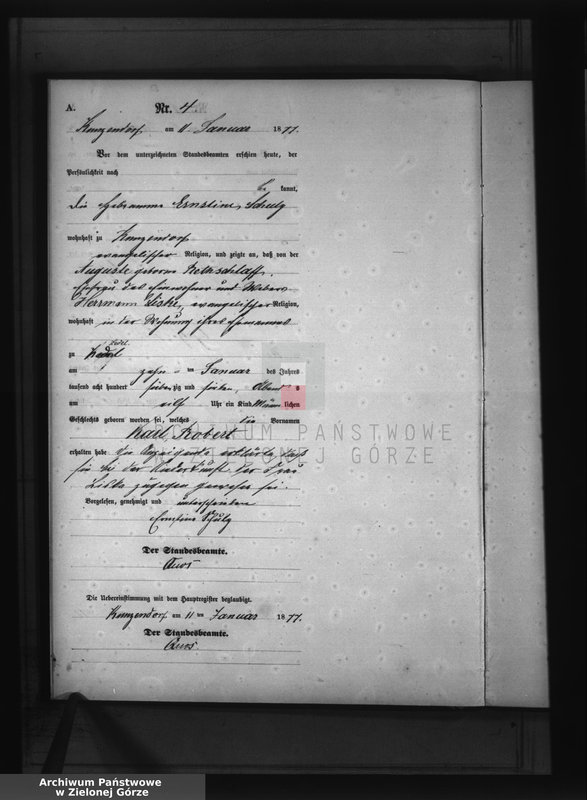 A.
Nr. 4.
Kunzendorf am 11 Januar 1877.
Vor dem unterzeichneten Standesbeamten erschien heute, der
Persönlichkeit nach
kannt,
die Hebamme Ernstine Schulz
wohnhaft zu Kunzendorf
evangelischer Religion, und zeigte an, daß von der
Auguste geborne Rethschlag,
Ehefrau des Einwohner und Webers
Herrmann Liske, evangelischer Religion,
wohnhaft in der Wohnung ihres Ehemannes
zu
am zehn ten Januar des Jahres
tausend acht hundert sieben zig und sieben, Abend s
um elf Uhr ein Kind Männ lichen
Geschlechts geboren worden sei, welches die Vornamen
Karl Robert
erhalten habe. Die Anzeigende erklärte, daß
sie bei der Niederkunft der Frau
Liske zugegen gewesen sei.
Vorgelesen, genehmigt und unterschrieben
Ernstine Schulz
Der Standesbeamte.
Die Uebereinstimmung mit dem Hauptregister beglaubigt.
Kunzendorf am 11 ten Januar 1877.
Der Standesbeamte.
ARCHIWUM PAŃSTWOWE
W ZIELONEJ GÓRZE
Archiwum Państwowe
w Zielonej Górze